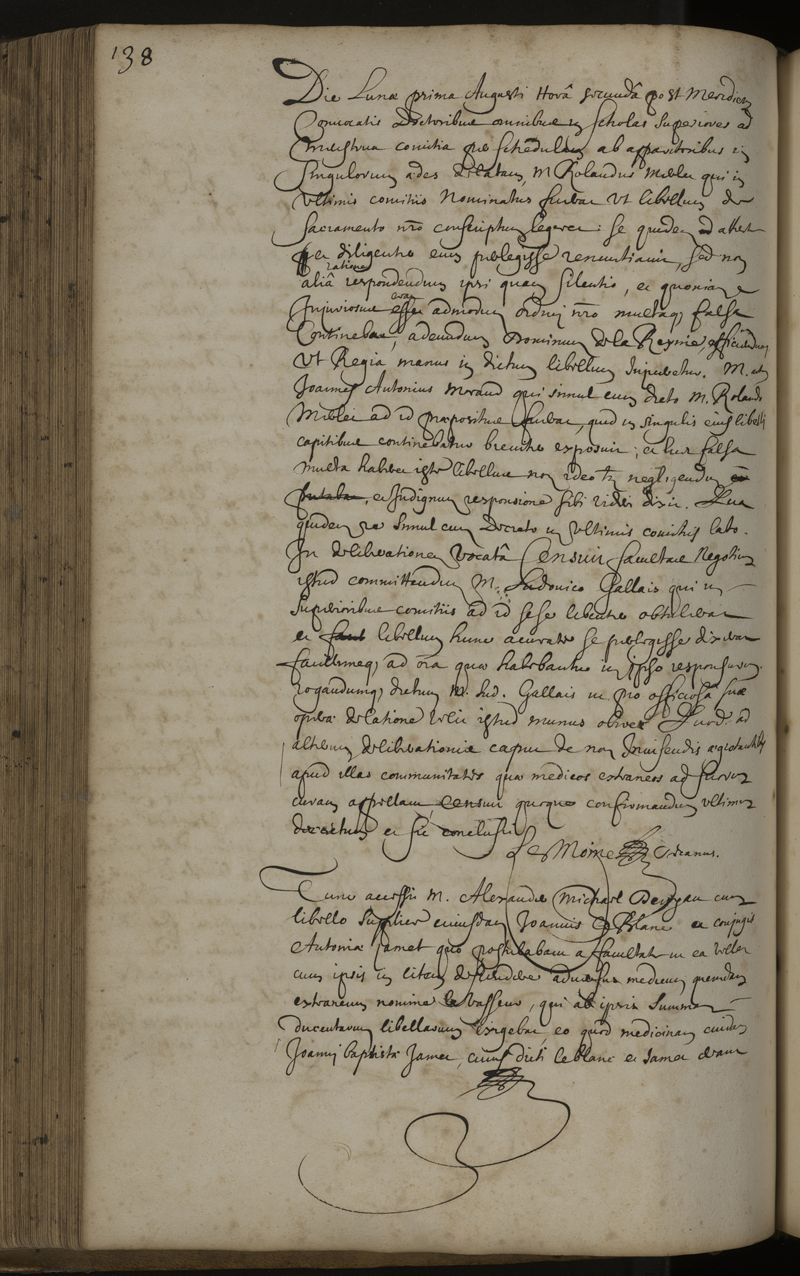 138
Die Lunæ prima Augusti Horâ secundâ post Meridiem
Convocatis Doctoribus omnibus in scholas superiores ad
menstrua comitia per schedulam ab apparitoribus in
singulorum ædes delatam, M Rolandus Merlet qui in
ultimis comitiis Nominatus fuerat ut libellum de
sacramento nro conscriptum legeret: se quidem
diligenter eum perlegisse renuntiavit, sed non
ratione
aliâ respondendum ipsi quam silentio, et quoniam
erat
Injuriosus admodum ordini nro multaq falsa
Continebat, adeundum Dominum de la Reynie, efficiendum
ut Regia manus in dictum libellum Injiceretur. M.
Joannes Antonius Morand qui simul cum dicto M. Rolando
Merlet ad id præpositus fuerat, quid in singulis eius libelli
capitibus continebatur breviter exposuit; et licet falsa
multa haberet iste libellus non ideo negligendum
putabat, et Indignum responsione sibi videri dixit. Qua
quidem re simul cum Decreto in ultimis comitiis lato
In deliberationem vocatâ Censuit facultas Negotium
istud committendum M. Ludovico Gallais qui in
superioribus comitiis ad id sese libenter obtulerat
et libellum hunc accurate se perlegisse dixerat
facillimeq ad oia quæ habebantur in ipso responsurum
rogandumq dictum M. Lud. Gallais ut pro officiosâ suæ
operæ delatione velit istud munus obire. Quod ad
alterum deliberationis caput de non Invisendis ægrotantibus
apud illas communitates quæ medicos extraneos ad suorum
curam appellant, Censuit quoque confirmandum ultimum
decretum et sic conclusit
Le Moine Decanus.
Tunc accessit M. Alexander Michael Denyau cum
libello supplice cuiusdam Joannis Le Blanc et conjugis
Antoniæ Jamet quo postulabant a facultate ut ea vellet
cum ipsis in litem descendere adversus medicum quemdam
extraneum nomine Le Vasseur, qui ab ipsis summam
ducentarum libellarum Exigebat, eo quod medicinam cuidam
Joanni baptistæ Jamet, cuius dicti le blanc et Jamet erant